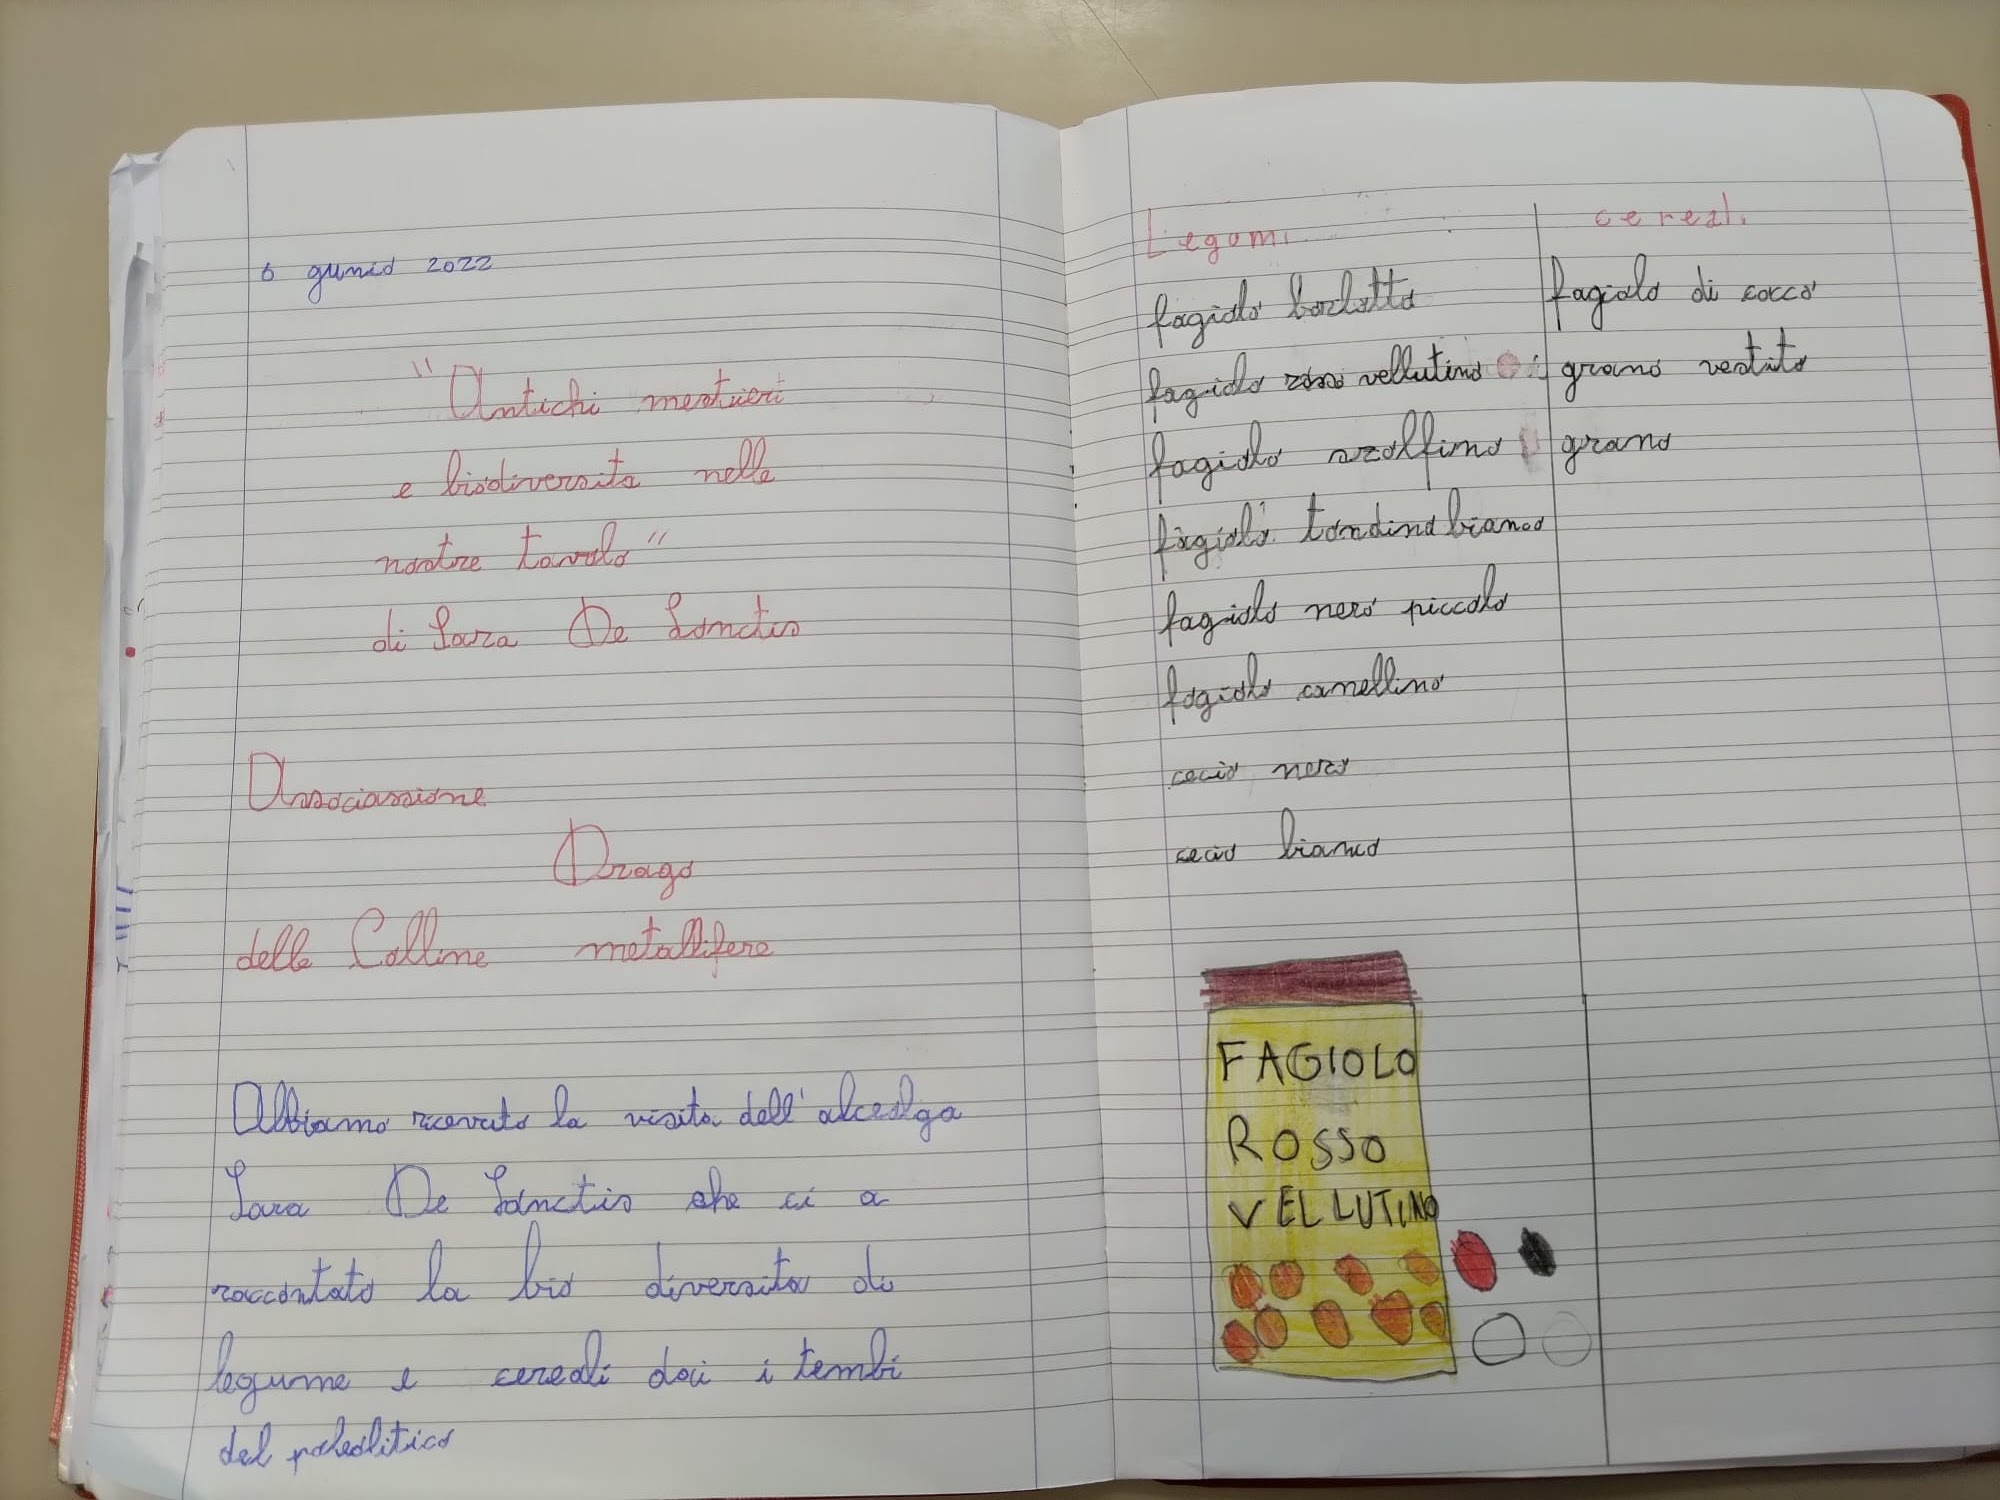 6 gunio 2022
"Antichi mestieri
e biodiversita nelle
nostre tavolo"
di Sara De Sanctis
Associassione
Drago
delle Colline metallifere
Abbiamo ricevuto la visita dell'alceolga
Sara De Sanctis che ci a
raccontato la bio diversita di
legume e cereali dai i tembi
del paleolitico
Legumi
fagiolo borlotto
fagiolo rosso vellutino
fagiolo szolfino
fagiolo tondino bianco
fagiolo nero piccolo
fagiolo canellino
cecio nero
cecio bianco
cereali
fagiolo di cocco
grano vestito
grano
FAGIOLO
ROSSO
VELLUTINO